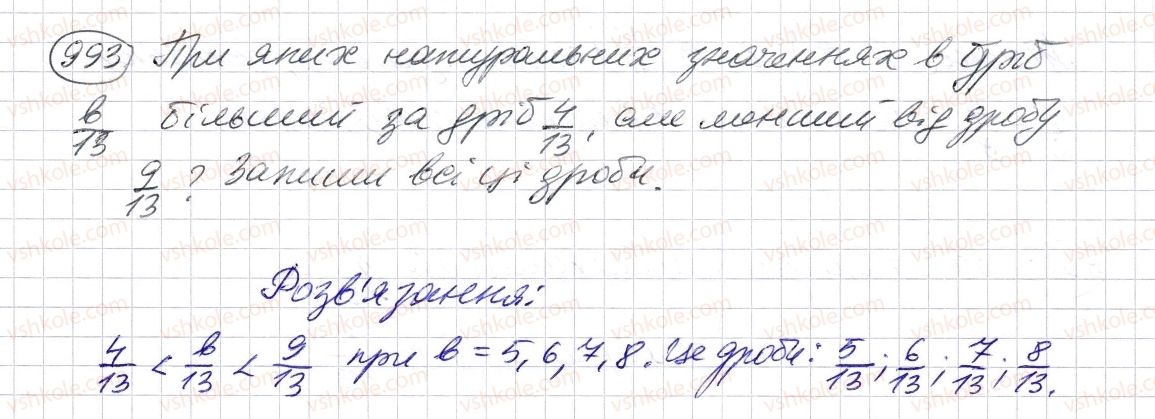 993 При яких натуральних значеннях в дріб
в/13 більший за дріб 4/13, але менший від дробу
9/13? Запиши всі ці дроби.
Розв'язання:
4/13 < в/13 < 9/13 при в = 5, 6, 7, 8. Це дроби: 5/13; 6/13; 7/13; 8/13.